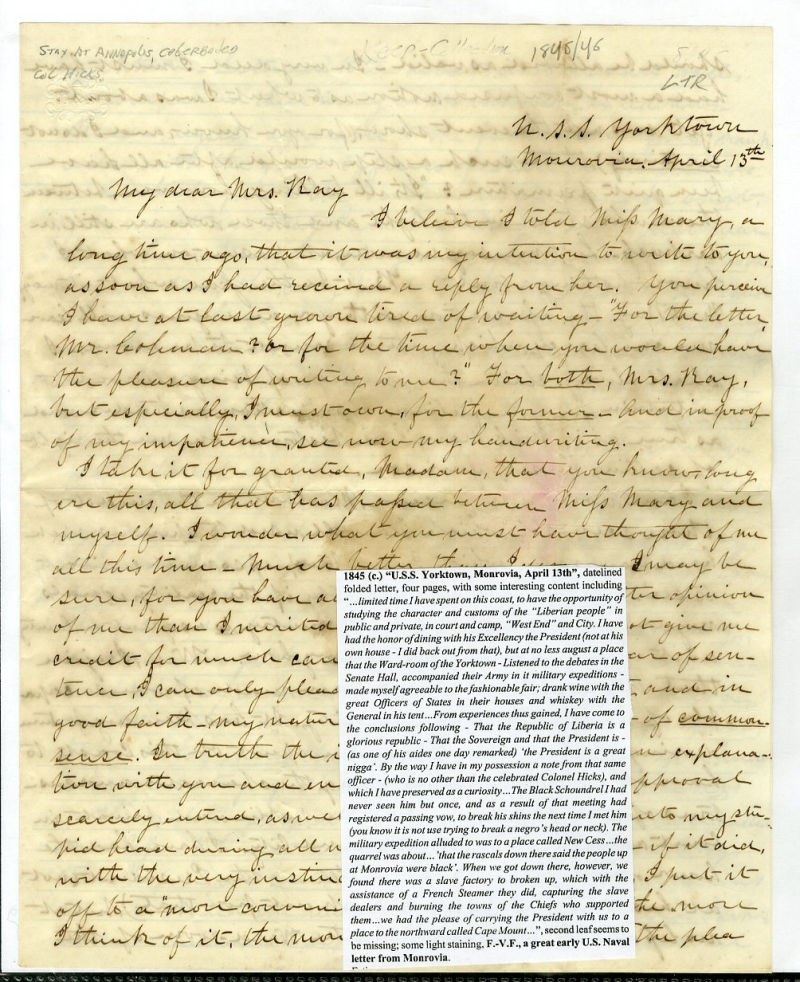 STAY AT ANNAPOLIS,
Col Hicks.
1845/46
LTR
U. S. S. Yorktown
Monrovia, April 13th
My dear Mrs. Ray
I beleive I told Miss Mary, a
long time ago, that it was my intention to write to you,
as soon as I had received a reply from her. You perceive
I have at last grown tired of waiting - "For the letter,
Mr. Cohman? or for the time when you would have
the pleasure of writing to me?" For both, Mrs. Ray,
but especially, I must own, for the former - And in proof
of my impatience, see now my handwriting.
I take it for granted, Madam, that you know, long
ere this, all that has passed between Miss Mary and
myself. I wonder what you must have thought of me
all this time - Much better than I may be
sure, for you have opinion
of me than I merited give me
credit for much of sen-
tence, I can only plead and in
good faith - my natur of common-
sense. In truth the explana-
tion with you and en approval
scarcely intend, as we to my stu-
pid head during all if it did,
with the very instin I put it
off to a "more conveni the more
I think of it, the mor the plea
1845 (c.) "U.S.S. Yorktown, Monrovia, April 13th", datelined
folded letter, four pages, with some interesting content including
"...limited time I have spent on this coast, to have the opportunity of
studying the character and customs of the "Liberian people" in
public and private, in court and camp, "West End" and City. I have
had the honor of dining with his Excellency the President (not at his
own house - I did back out from that), but at no less august a place
that the Ward-room of the Yorktown - Listened to the debates in the
Senate Hall, accompanied their Army in it military expeditions -
made myself agreeable to the fashionable fair; drank wine with the
great Officers of States in their houses and whiskey with the
General in his tent...From experiences thus gained, I have come to
the conclusions following - That the Republic of Liberia is a
glorious republic - That the Sovereign and that the President is -
(as one of his aides one day remarked) 'the President is a great
nigga'. By the way I have in my possession a note from that same
officer - (who is no other than the celebrated Colonel Hicks), and
which I have preserved as a curiosity...The Black Schoundrel I had
never seen him but once, and as a result of that meeting had
registered a passing vow, to break his shins the next time I met him
(you know it is not use trying to break a negro's head or neck). The
military expedition alluded to was to a place called New Cess...the
quarrel was about...'that the rascals down there said the people up
at Monrovia were black'. When we got down there, however, we
found there was a slave factory to broken up, which with the
assistance of a French Steamer they did, capturing the slave
dealers and burning the towns of the Chiefs who supported
them...we had the please of carrying the President with us to a
place to the northward called Cape Mount...", second leaf seems to
be missing; some light staining, F.-V.F., a great early U.S. Naval
letter from Monrovia.